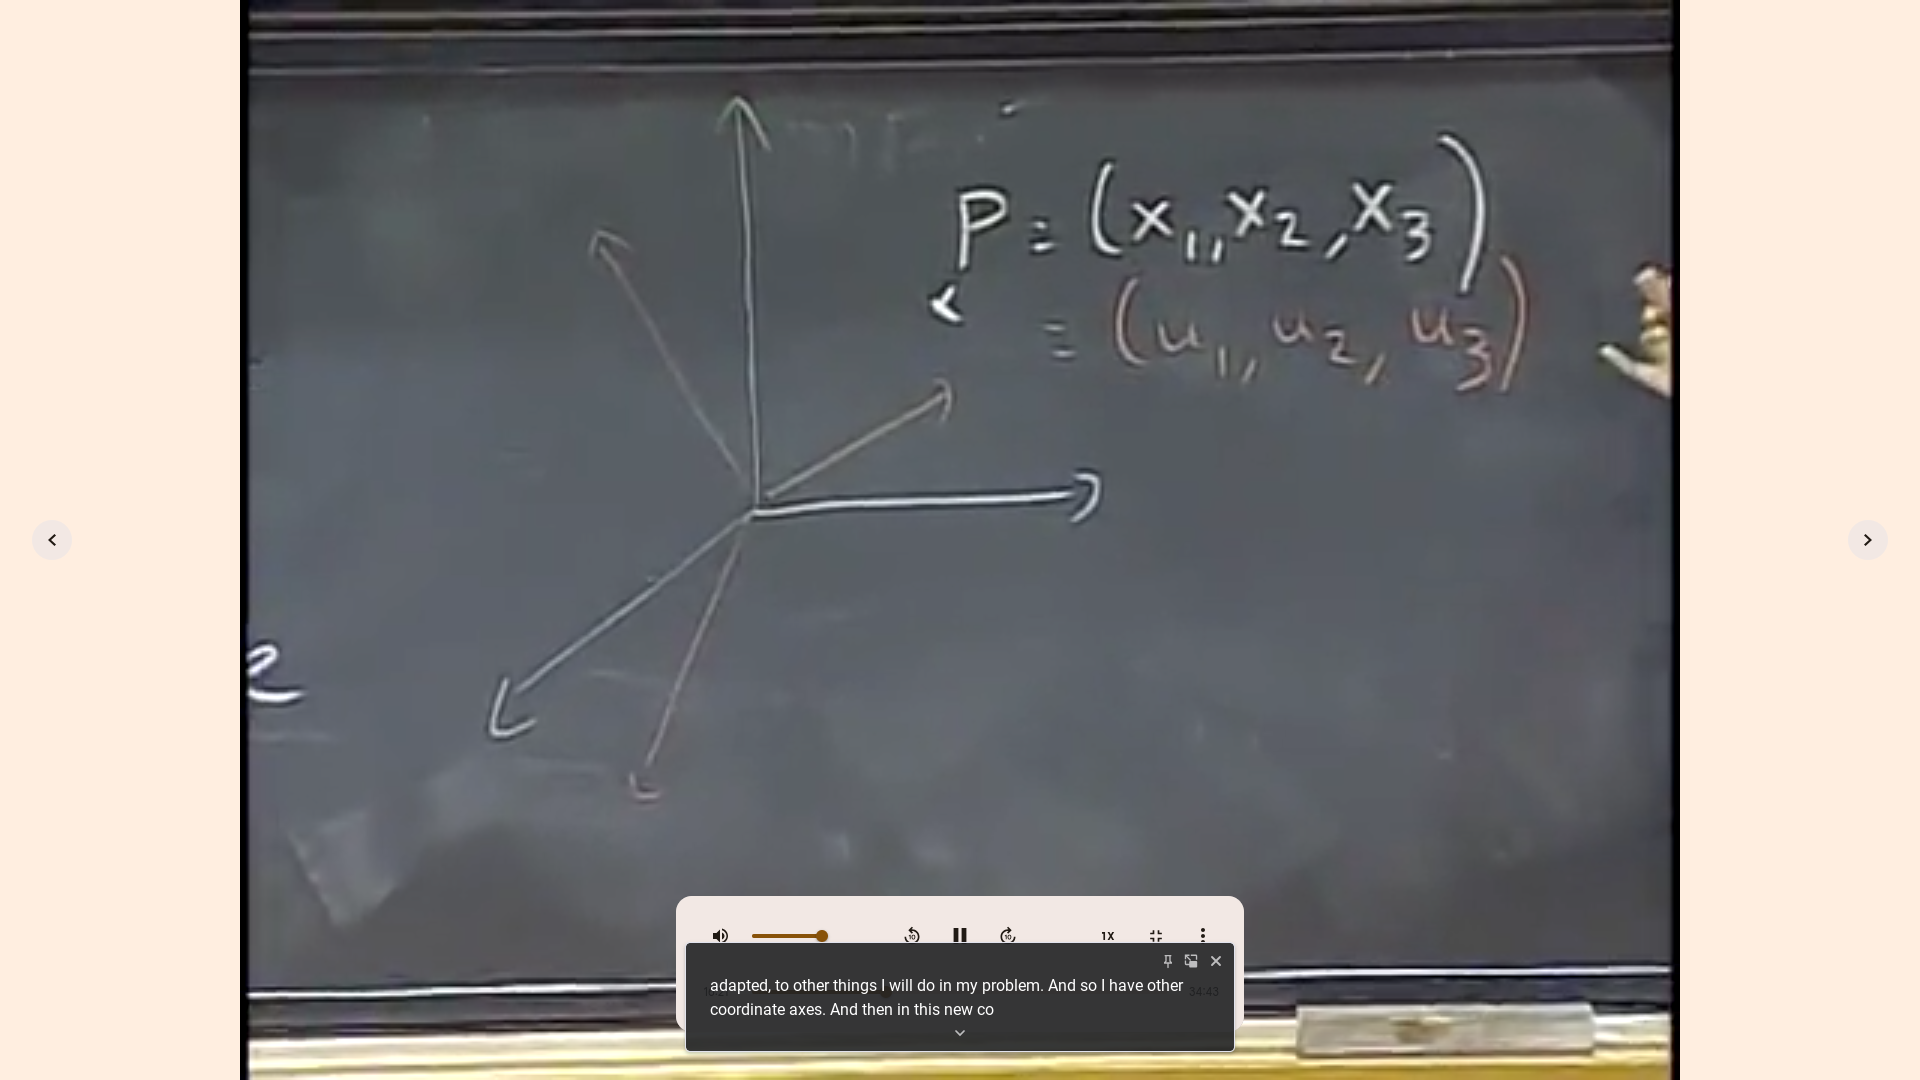 P = (x₁, x₂, x₃)
= (u₁, u₂, u₃)
2
10
10
1X
34:43
adapted, to other things I will do in my problem. And so I have other
coordinate axes. And then in this new co